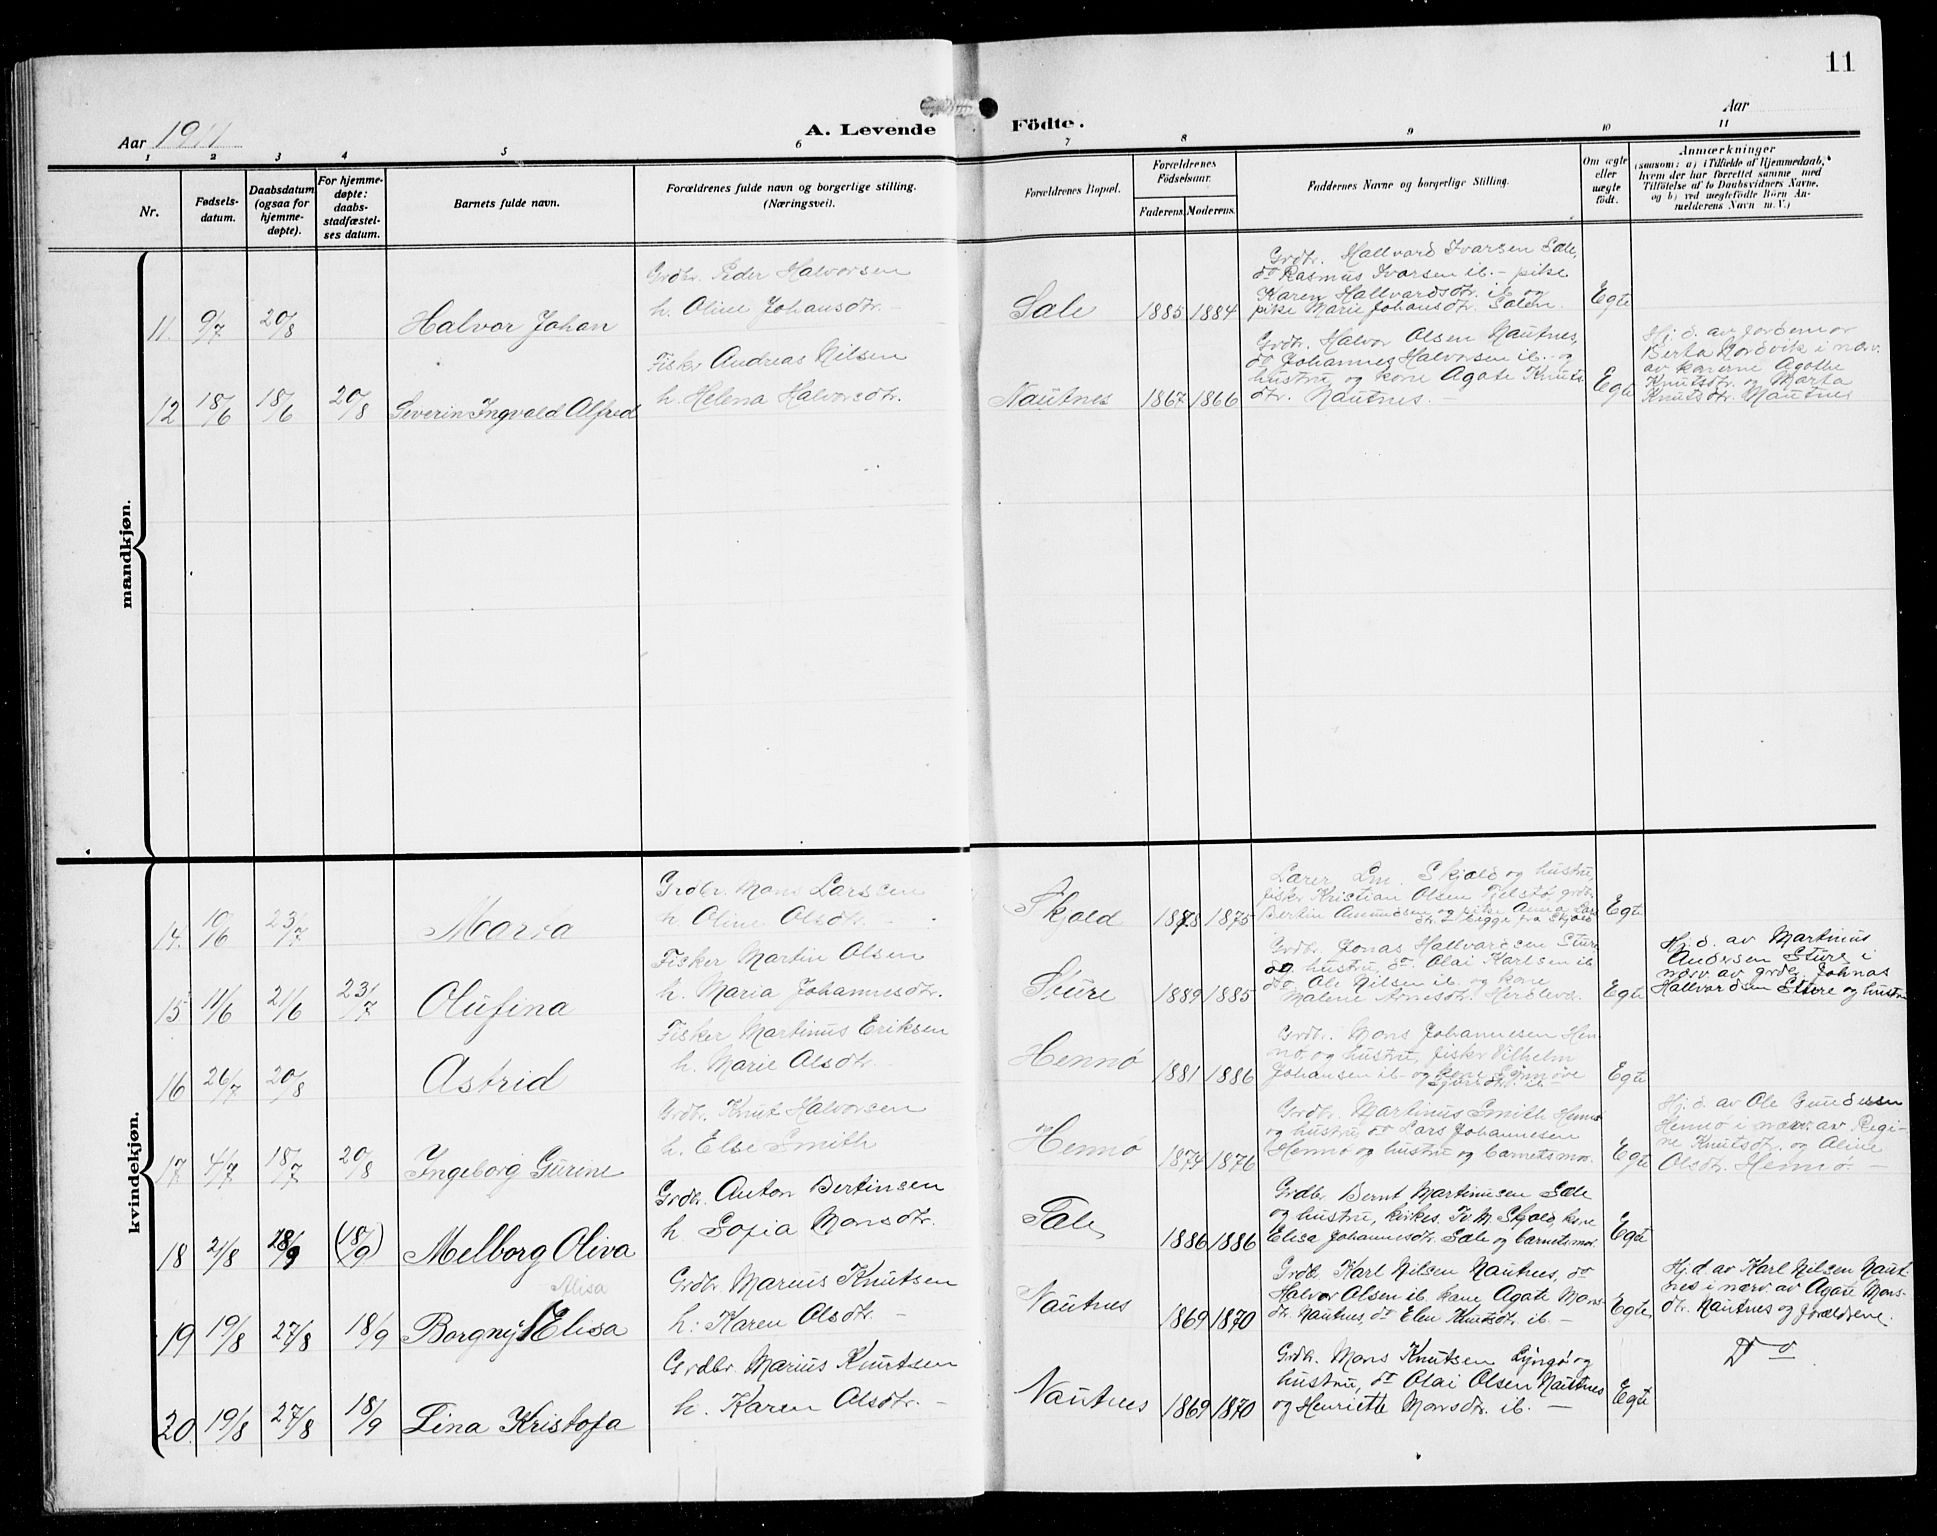 11
Aar 1911
A. Levende Födte.
Aar
1 2 3 4 5 6 7 8 9 10 11
Nr.
Fødsels-
datum.
Daabsdatum
(ogsaa for
hjemme-
døpte).
For hjemme-
døpte:
daabs-
stadfæstel-
ses datum.
Barnets fulde navn.
Forældrenes fulde navn og borgerlige stilling.
(Næringsvei).
Forældrenes Bopæl.
Forældrenes
Födselsaar.
Faderens. Moderens.
Faddernes Navne og borgerlige Stilling.
Om ægte
eller
uægte
født.
Anmærkninger
(saasom: a) i Tilfælde af Hjemmedaab,
hvem der har forrettet samme med
Tilföielse af to Daabsvidners Navne,
og b) ved uægtefödte Börn An-
melderens Navn m. V.)
mandkjøn.
11. 9/7 20/8 Halvor Johan
Grdbr. Peder Halvorsen
h. Oline Johansdtr.
Sale 1885 1884
Grdbr. Hallvard Ivarsen Sæle,
do Rasmus Ivarsen ib. - pike
Karen Hallvardsdtr. ib og
pike Marie Johansdtr. Sælen.
Egte
12 18/6 18/6 20/8 Severin Ingvald Alfred
Fisker Andreas Nilsen
h. Helena Halvorsdtr.
Nautnes 1867 1866
Grdbr. Halvor Olsen Nautnes,
do Johannes Halvorsen ib. og
hustru og kone Agate Knuts-
dtr. Nautnes. -
Egte
Hj. d. av Jordemor
Berta Nordvik i nærv.
av konerne Agothe
Knutsdtr. og Marta
Knutsdtr. Nautnes
kvindekjøn.
14. 10/6 23/7 Marta
Grdbr. Mons Larssen
h Oline Olsdtr.
Skjold 1878 1875
Lærer Skjold og hustru,
fisker Kristian Olsen
Bertin Amundsen og pike Anna Lars
fra Skjold
Egte
15 11/6 21/6 23/7 Olufina
Fisker Martin Olsen
h. Maria Johannesdtr.
Sture 1889 1885
Grdbr. Jonas Hallvardsen Sture
og hustru, do Olai Karlsen ib
do Ole Nilsen ib. og kone
Malene Arnesdtr. Herdlevær.
Egte
Hj. d. av Martinus
Andersen Sture i
nærv. av grdbr. Johnas
Hallvardsen Sture og hustru
16 26/7 20/8 Astrid
Fisker Martinus Eriksen
h. Marie Olsdtr.
Hennø 1881 1886
Grdbr. Mons Johannesen Hen-
nø og hustru, fisker Vilhelm
Johansen ib. og kone Synnøve
ib.
Egte
17 4/7 18/7 20/8 Ingeborg Gurine
Grdbr. Knut Halvorsen
h. Else Smith
Hennø 1874 1876
Grdbr. Martinus Smith Hennø
og hustru, do Lars Johannesen
Hennø og hustru og barnets mor.
Egte
Hj. d. av Ole Gundersen
Hennø i nærv. av Regi-
ne Knutsdtr. og Oline
Olsdtr. Hennø. -
18 2/8 18/9 (18/9) Melborg Oliva
Grdbr. Anton Bertinsen
h Sofia Monsdtr.
Sale 1886 1886
Grdbr Bernt Martinusen Sæle
og hustru, kirkes. Iv M Skjold, kone
Elisa Johannesdtr. Sæle og barnets mor.
Egte
19 19/8 27/8 18/9 Borgny Elisa
Alisa
Grdbr. Marius Knutsen
h: Karen Olsdtr. -
Nautnes 1869 1870
Grdbr. Karl Nilsen Nautnes, do
Halvor Olsen ib. kone Agate Mons-
dtr. Nautnes, do Elen Knutsdtr. ib. -
Egte
Hj. d. av Karl Nilsen Naut-
nes i nærv. av Agate Mons-
dtr. Nautnes og forældrene.
20. 19/8 27/8 18/9 Lina Kristofa
Grdbr Marius Knutsen
h. Karen Olsdtr. -
Nautnes 1869 1870
Grdbr. Mons Knutsen Lyngø og
hustru, do Olai Olsen Nautnes
og Henriette Monsdtr. ib. -
Egte
Do